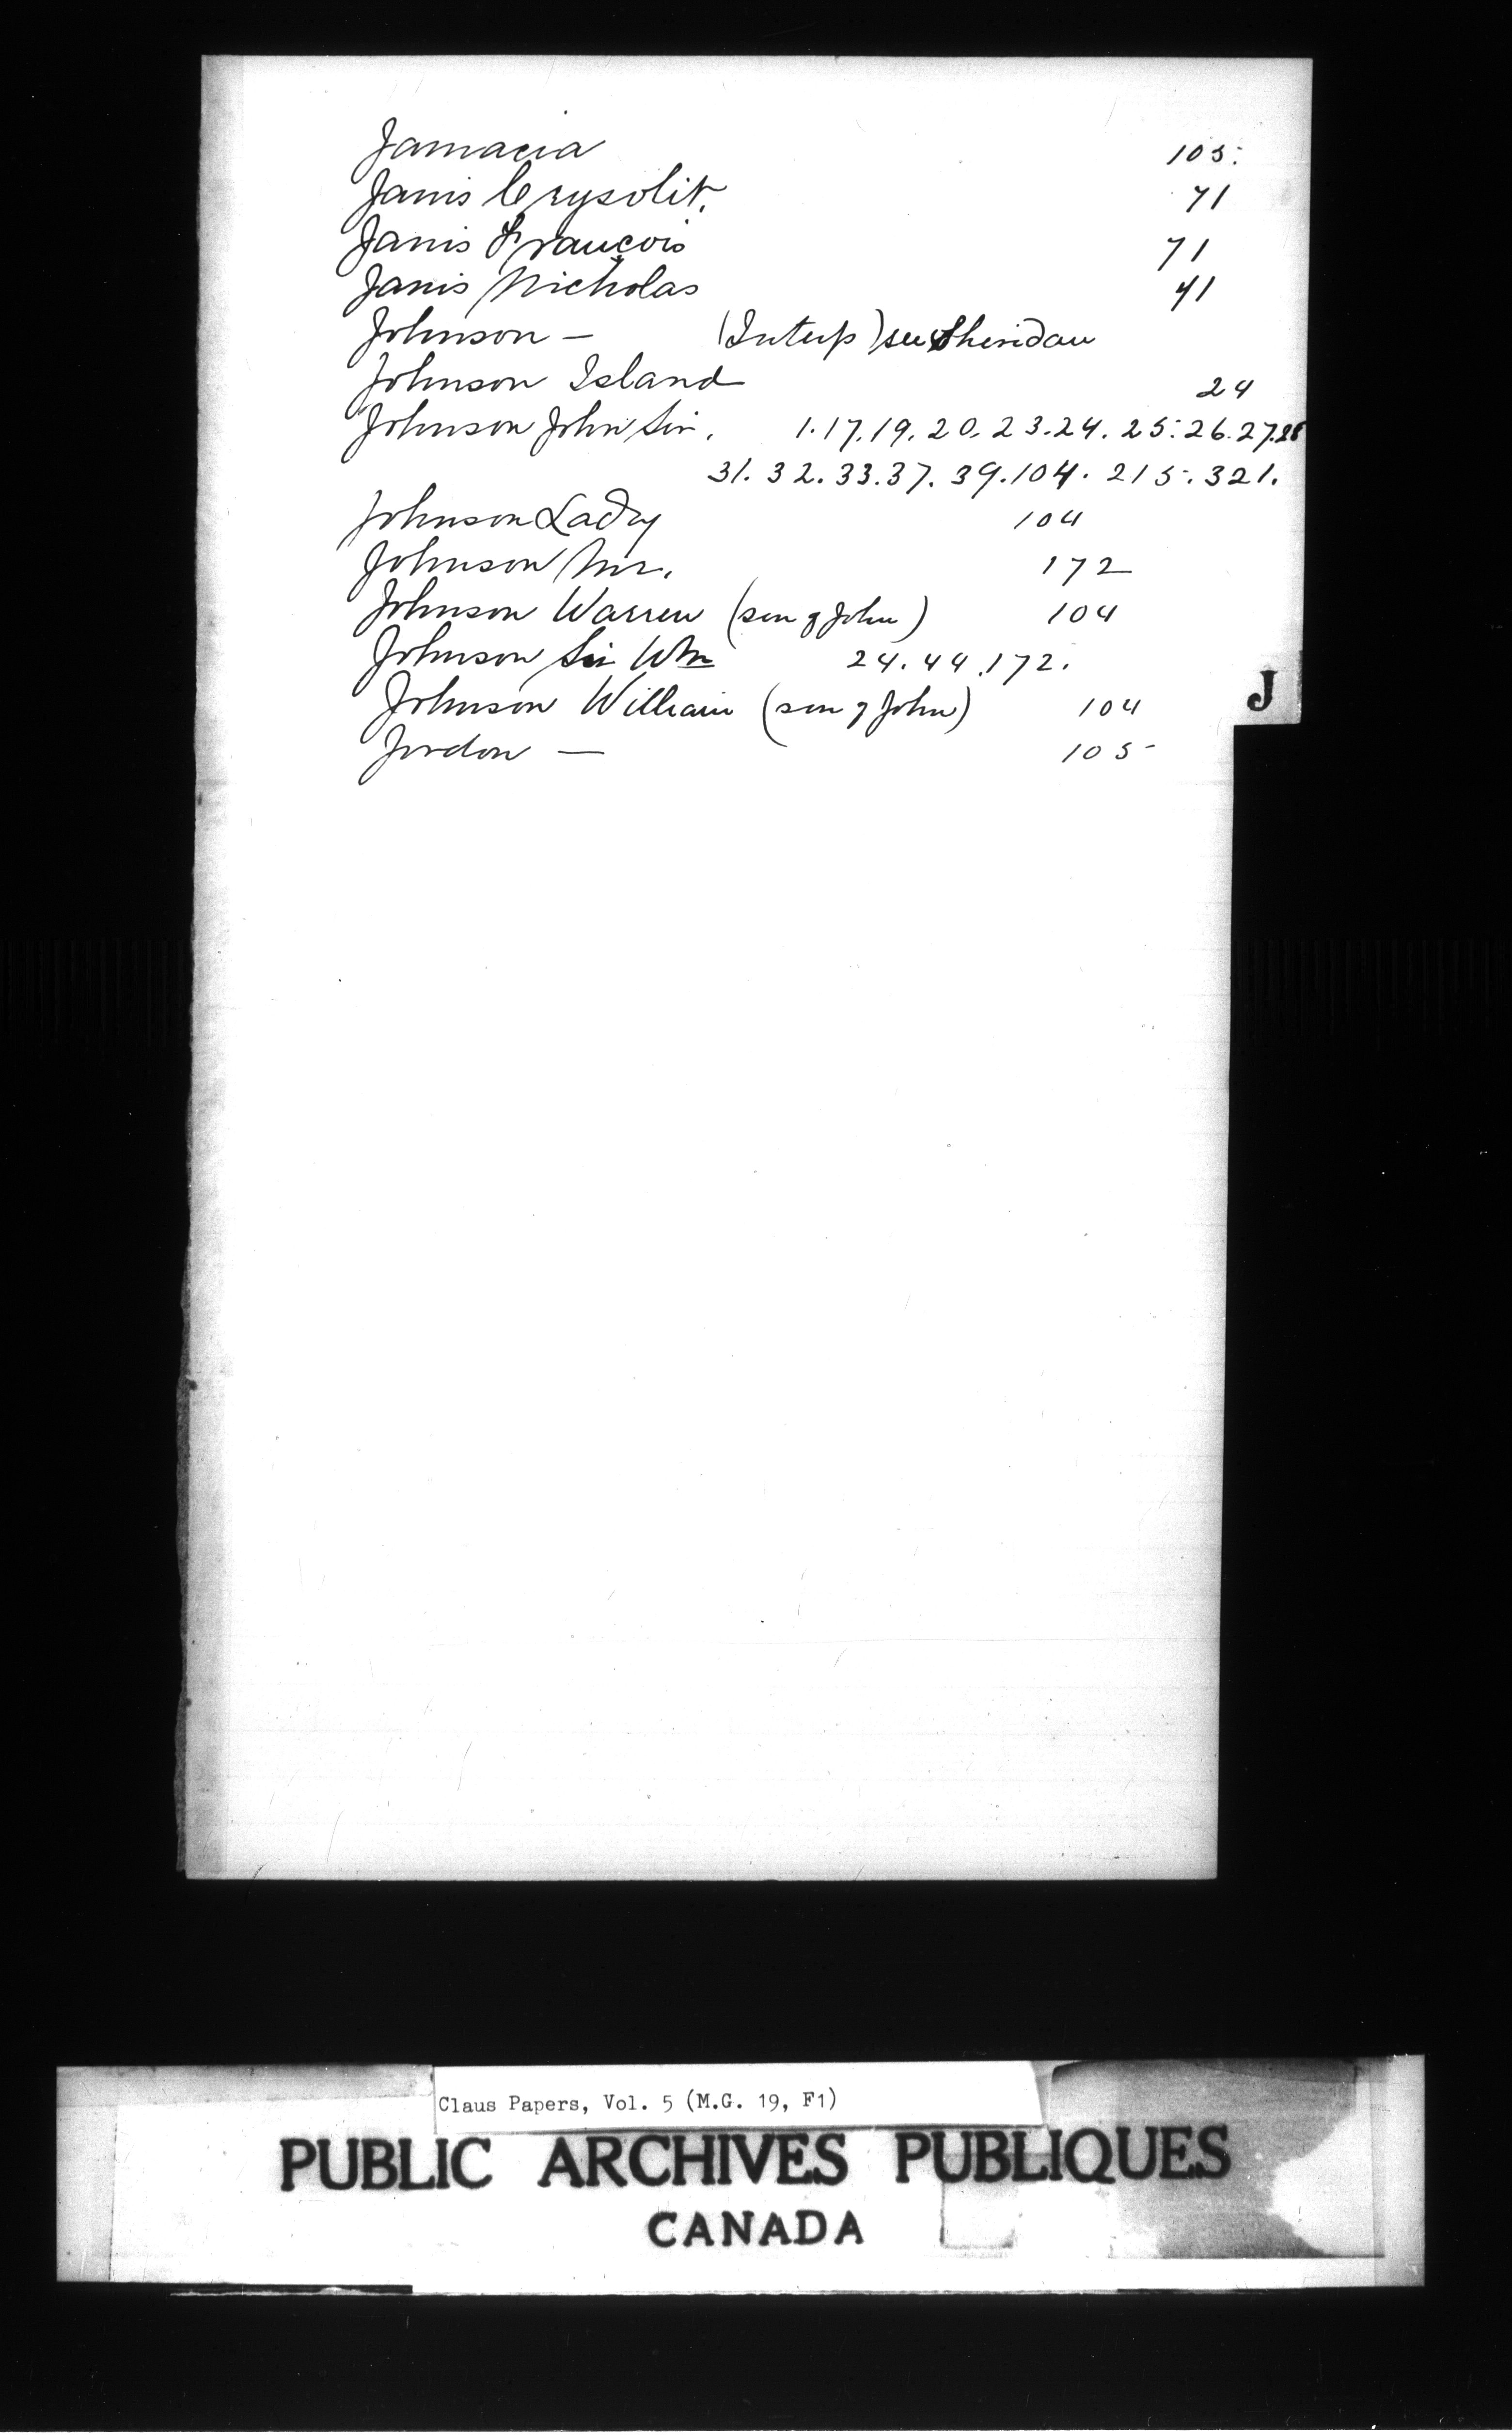 Jamacia 105.
Janis Crysolit. 71
Janis François 71
Janis Nicholas 41
Johnson — (Interp) see Sheridan
Johnson Island 24
Johnson John Sir. 1. 17. 19. 20. 23. 24. 25. 26. 27. 28
31. 32. 33. 37. 39. 104. 215. 321.
Johnson Lady 104
Johnson Mr. 172
Johnson Warren (son of John) 104
Johnson Sir Wm 24. 44. 172.
Johnson William (son of John) 104
J
Jordon — 105
Claus Papers, Vol. 5 (M.G. 19, F1)
PUBLIC ARCHIVES PUBLIQUES
CANADA